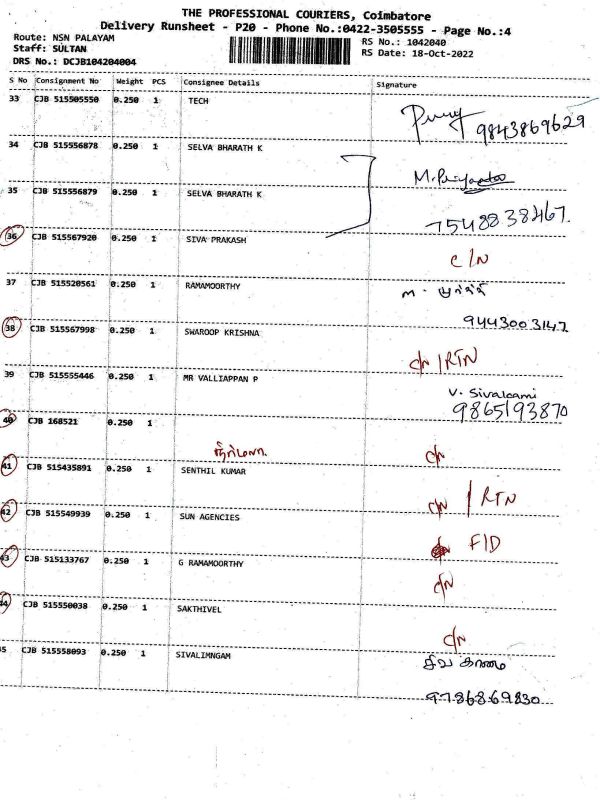 THE PROFESSIONAL COURIERS, Coimbatore
Delivery Runsheet - P20 - Phone No.:0422-3505555 - Page No.:4
Route: NSN PALAYAM
RS No.: 1042040
Staff: SULTAN
RS Date: 18-Oct-2022
DRS No.: DCJB104204004
S No Consignment No Weight PCS Consignee Details Signature
33 CJB 515505550 0.250 1 TECH
9843869629
34 CJB 515556878 0.250 1 SELVA BHARATH K
35 CJB 515556879 0.250 1 SELVA BHARATH K
7548838467.
36 CJB 515567920 0.250 1 SIVA PRAKASH
C/N
37 CJB 515520561 0.250 1 RAMAMOORTHY
9443003147
38 CJB 515567998 0.250 1 SWAROOP KRISHNA
C/N /RTN
39 CJB 515555446 0.250 1 MR VALLIAPPAN P
V. Sivalcami
9865193870
40 CJB 168521 0.250 1
நிர்மலா. C/N
41 CJB 515435891 0.250 1 SENTHIL KUMAR
C/N / RTN
42 CJB 515549939 0.250 1 SUN AGENCIES
F/D
43 CJB 515133767 0.250 1 G RAMAMOORTHY
C/N
44 CJB 515550038 0.250 1 SAKTHIVEL
C/N
5 CJB 515558093 0.250 1 SIVALIMNGAM
9786869830